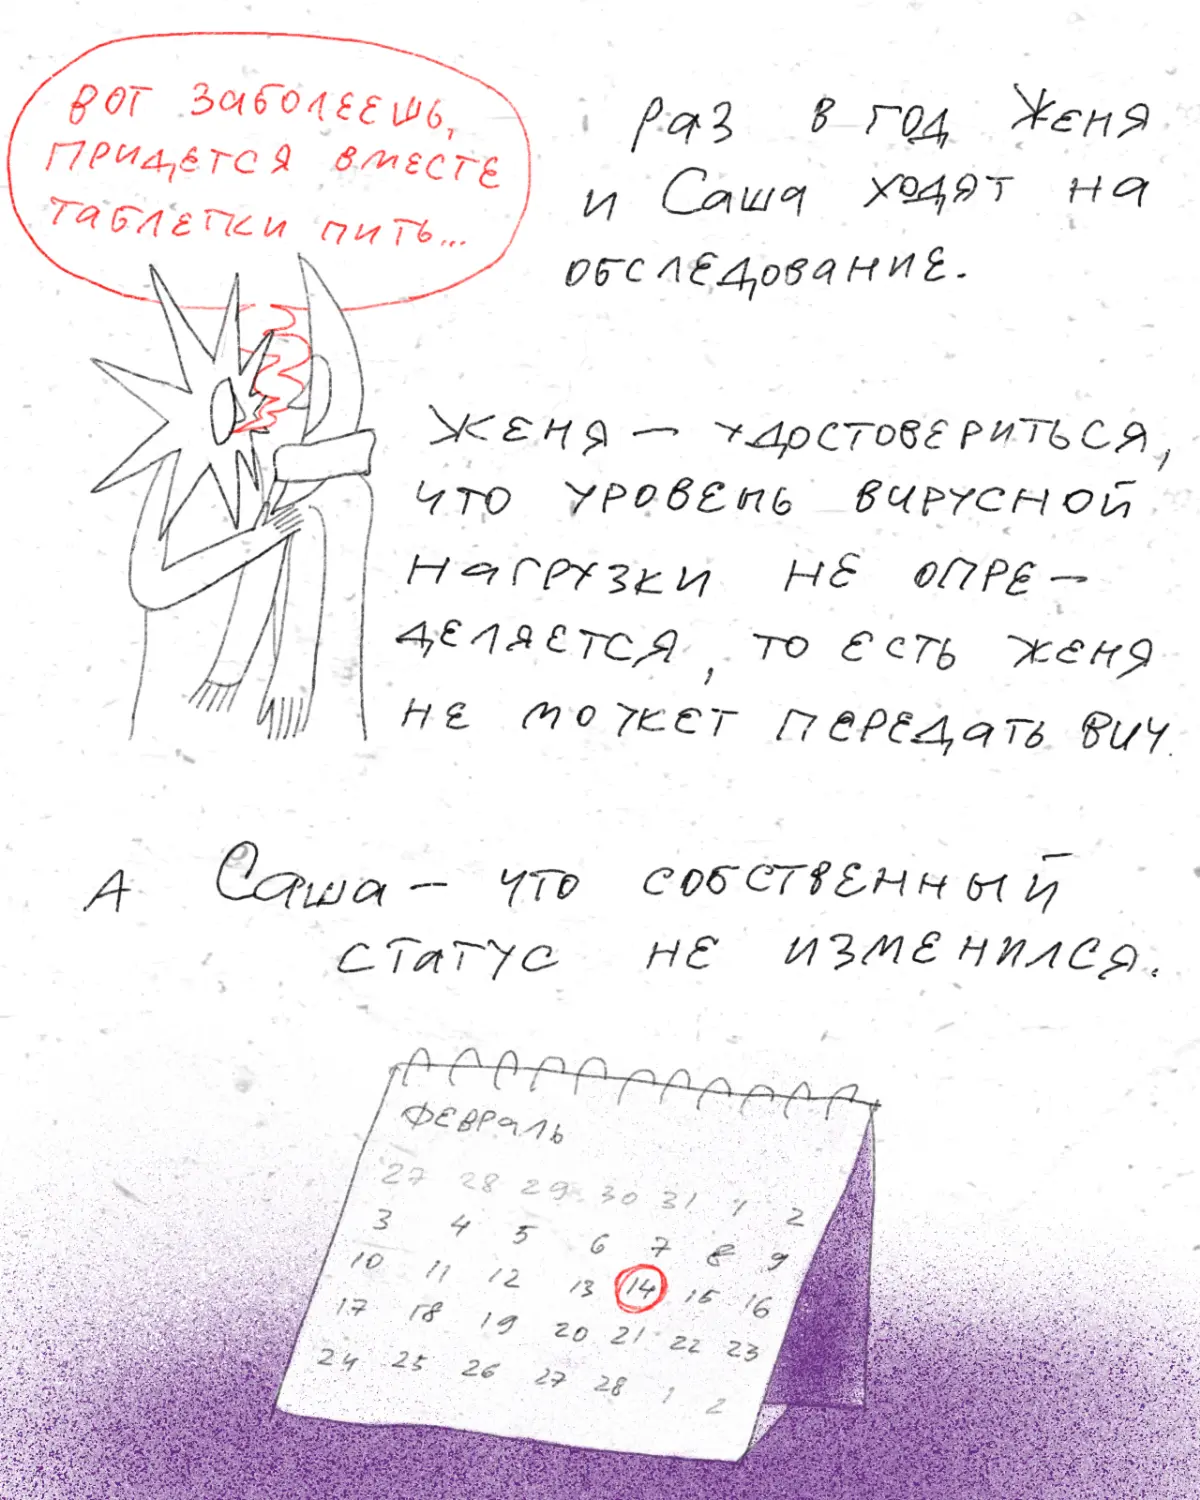 ВОТ ЗАБОЛЕЕШЬ,
ПРИДЕТСЯ ВМЕСТЕ
ТАБЛЕТКИ ПИТЬ...
РАЗ В ГОД ЖЕНЯ
И САША ХОДЯТ НА
ОБСЛЕДОВАНИЕ.
ЖЕНЯ — УДОСТОВЕРИТЬСЯ,
ЧТО УРОВЕНЬ ВИРУСНОЙ
НАГРУЗКИ НЕ ОПРЕ-
ДЕЛЯЕТСЯ, ТО ЕСТЬ ЖЕНЯ
НЕ МОЖЕТ ПЕРЕДАТЬ ВИЧ.
А САША — ЧТО СОБСТВЕННЫЙ
СТАТУС НЕ ИЗМЕНИЛСЯ.
ФЕВРАЛЬ
27 28 29 30 31 1 2
3 4 5 6 7 8 9
10 11 12 13 14 15 16
17 18 19 20 21 22 23
24 25 26 27 28 1 2